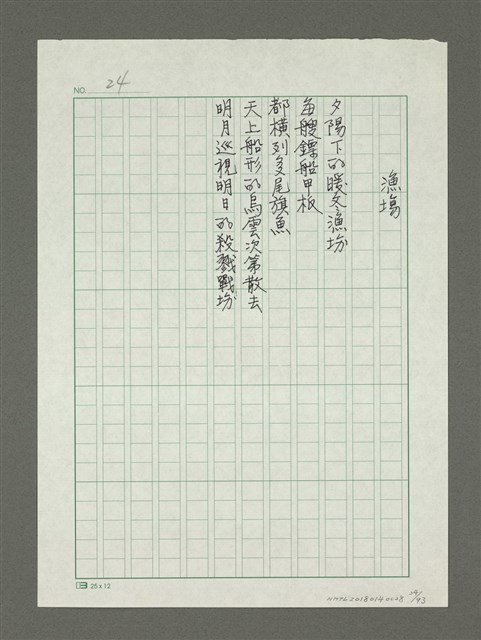 NO. 24
漁塲
夕陽下的暖冬漁場
每艘鏢船甲板
都橫列多尾旗魚
天上船形的烏雲次第散去
明月巡視明日的殺戮戰場
25 x 12
NMTL20180140008
24/93